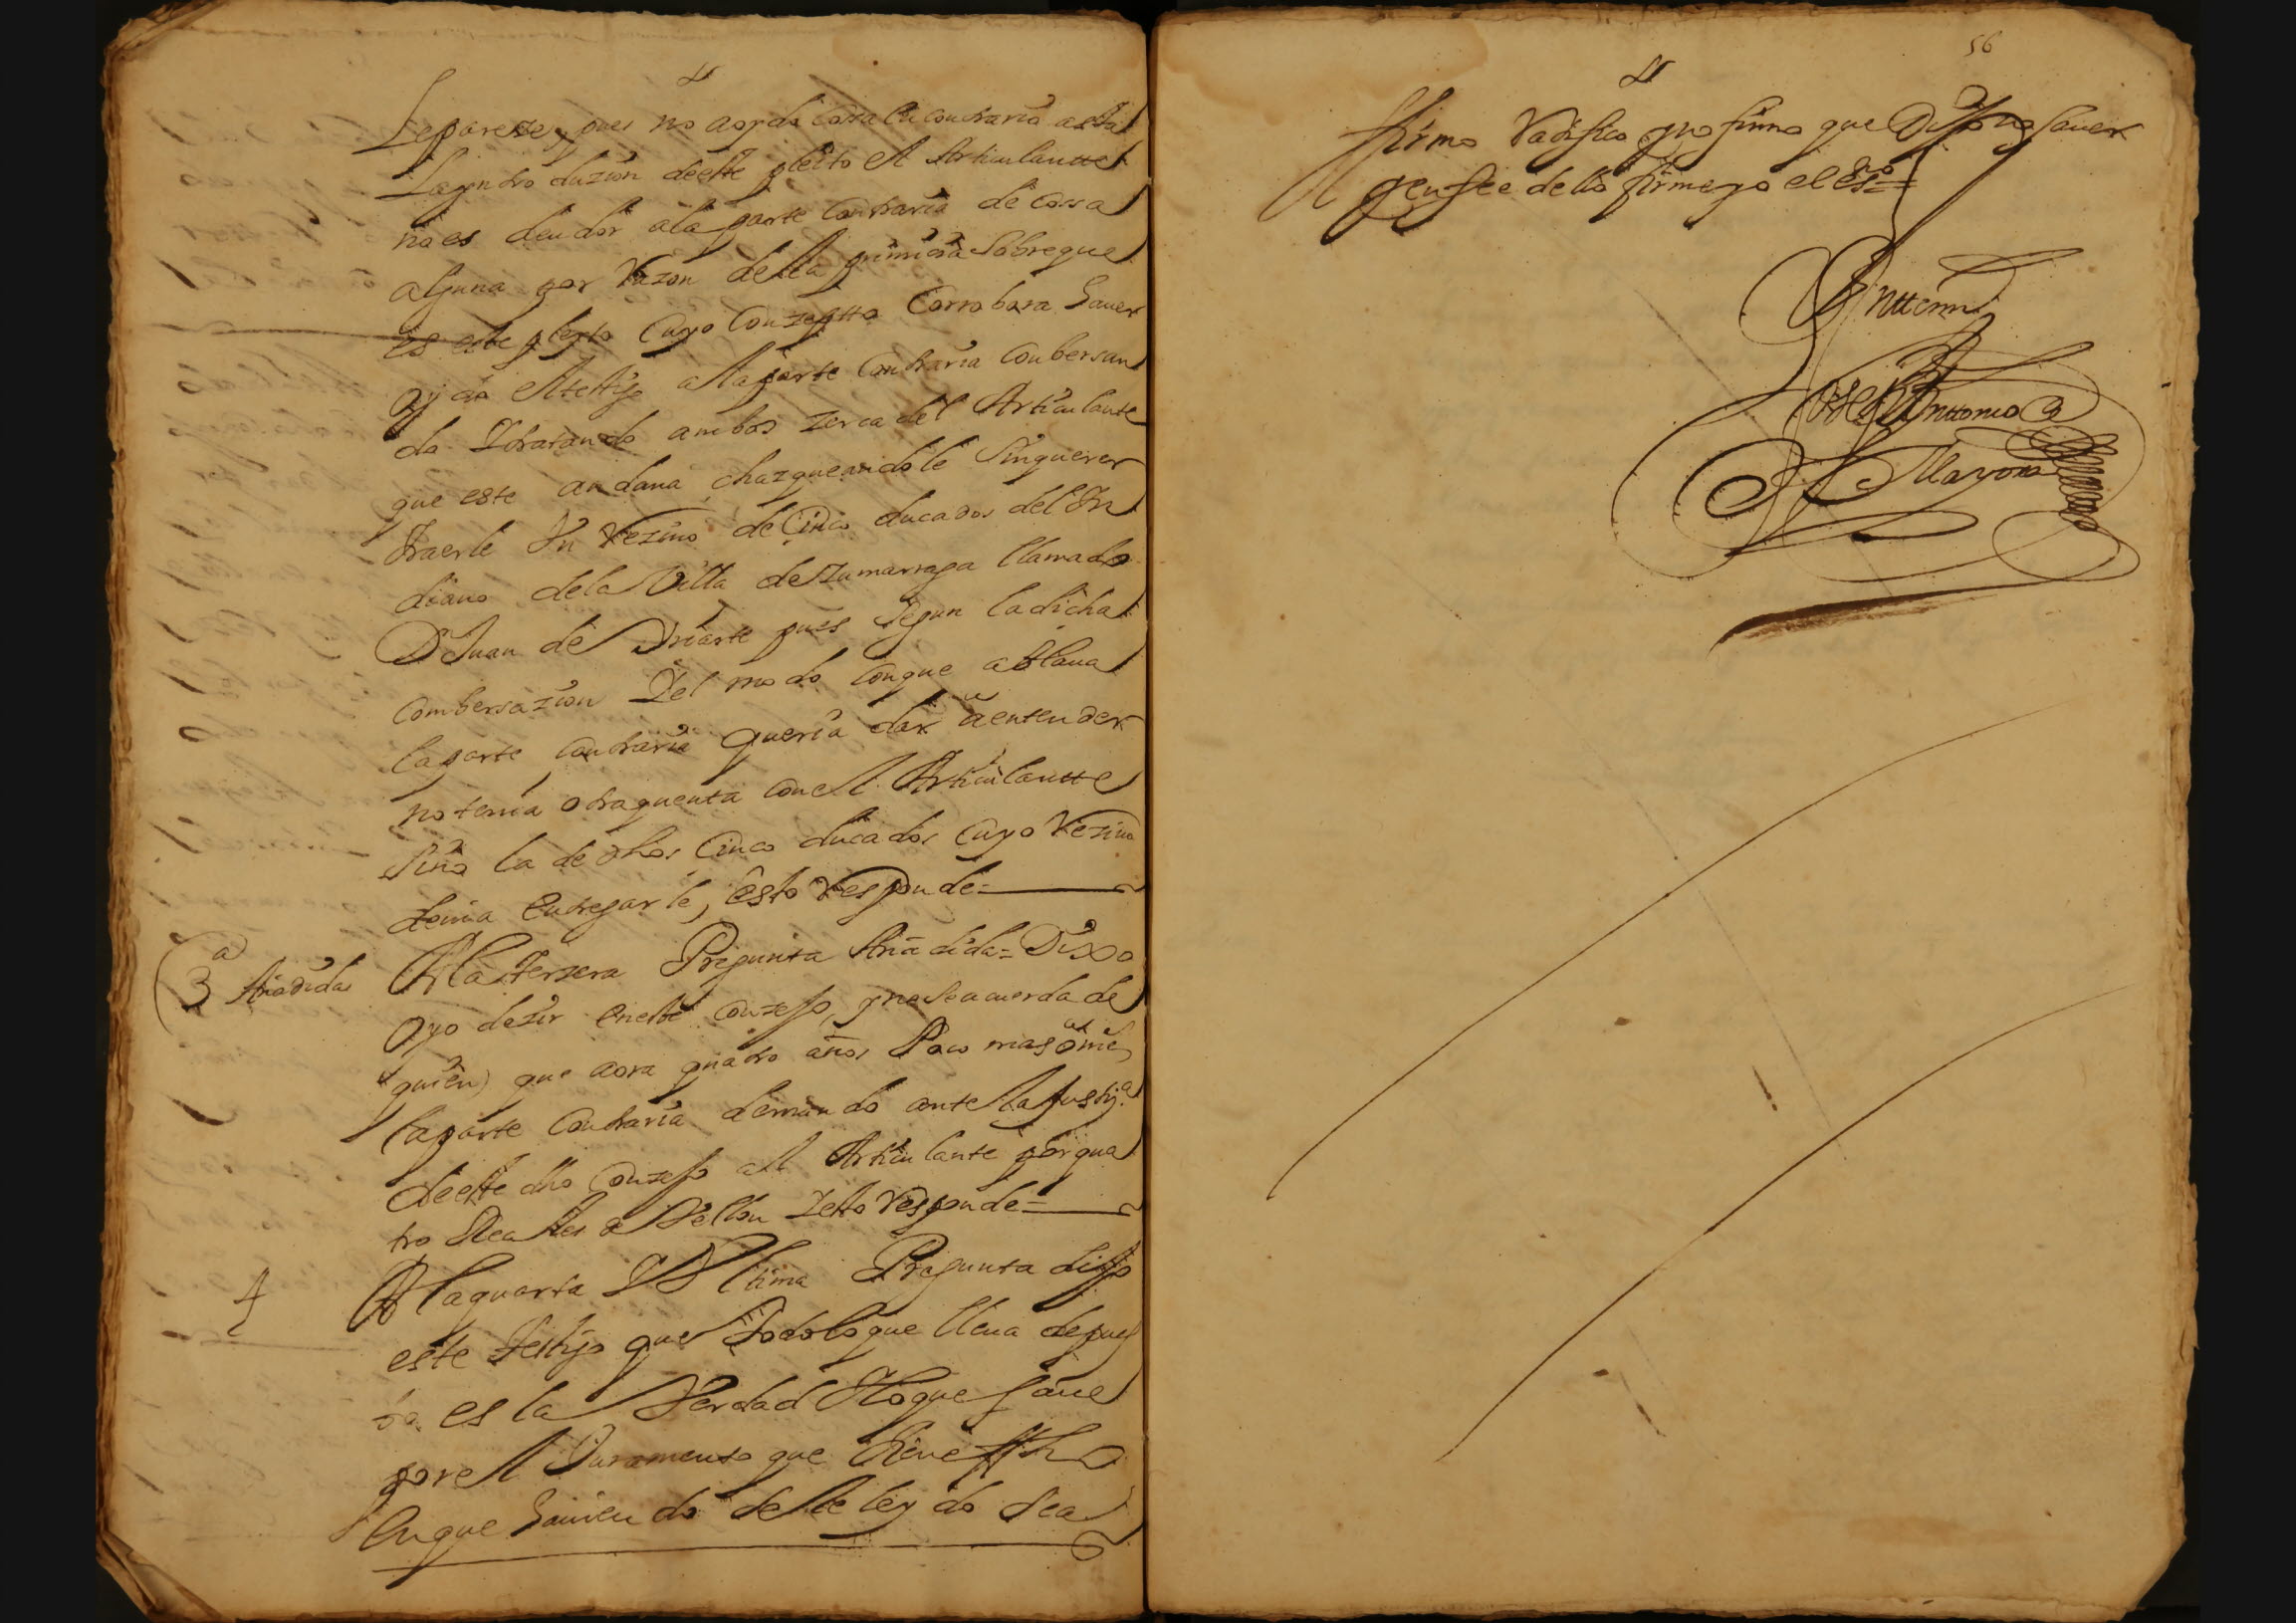 Le pareze, pues no a oydo cossa en contrario asta
La yntroduzion deeste pleito el Articulantte
no es deudor a la parte contraria de cossa
alguna por Razon dela primicia sobre que
es este pleyto cuyo Conzeptto Corrobora haver
oydo el testigo a la parte contraria conbersan
do y tratando ambos zerca del Articulante
que este andaua chazqueandole sin querer
traerle un Vezino de Cinco ducados del In
diano de la Villa de Zumarraga llamado
D Juan de Vriarte pues segun la dicha
combersazion y el modo con que ablaua
la parte contraria queria dar a entender
no tenia otra quenta con el Articulantte
sino la de dhos Cinco ducados cuyo Vezino
deuia entregarle, esto responde=
3a Añadida A la Terzera Pregunta Añadida= Dixo
oyo dezir en este Conzejo, y no se acuerda de
quien) que aora quatro años Poco mas o me.s
la parte contraria demando ante la Justiz.a
de este dho Conzejo al Articulante por qua
tro Reales de Vellon y esto responde=
4 A la quarta y Vltima Pregunta dijo
este testigo que Todo lo que lleua depues
to es la Verdad y lo que saue
por el Juramento que tiene ffho
en que hauiendosele leydo se a
56
firmo Ratifico y no firmo que Dijo no sauer
y en fee dello firme yo el Esno=
Anttemi
Joseph Anttonio
Mayora